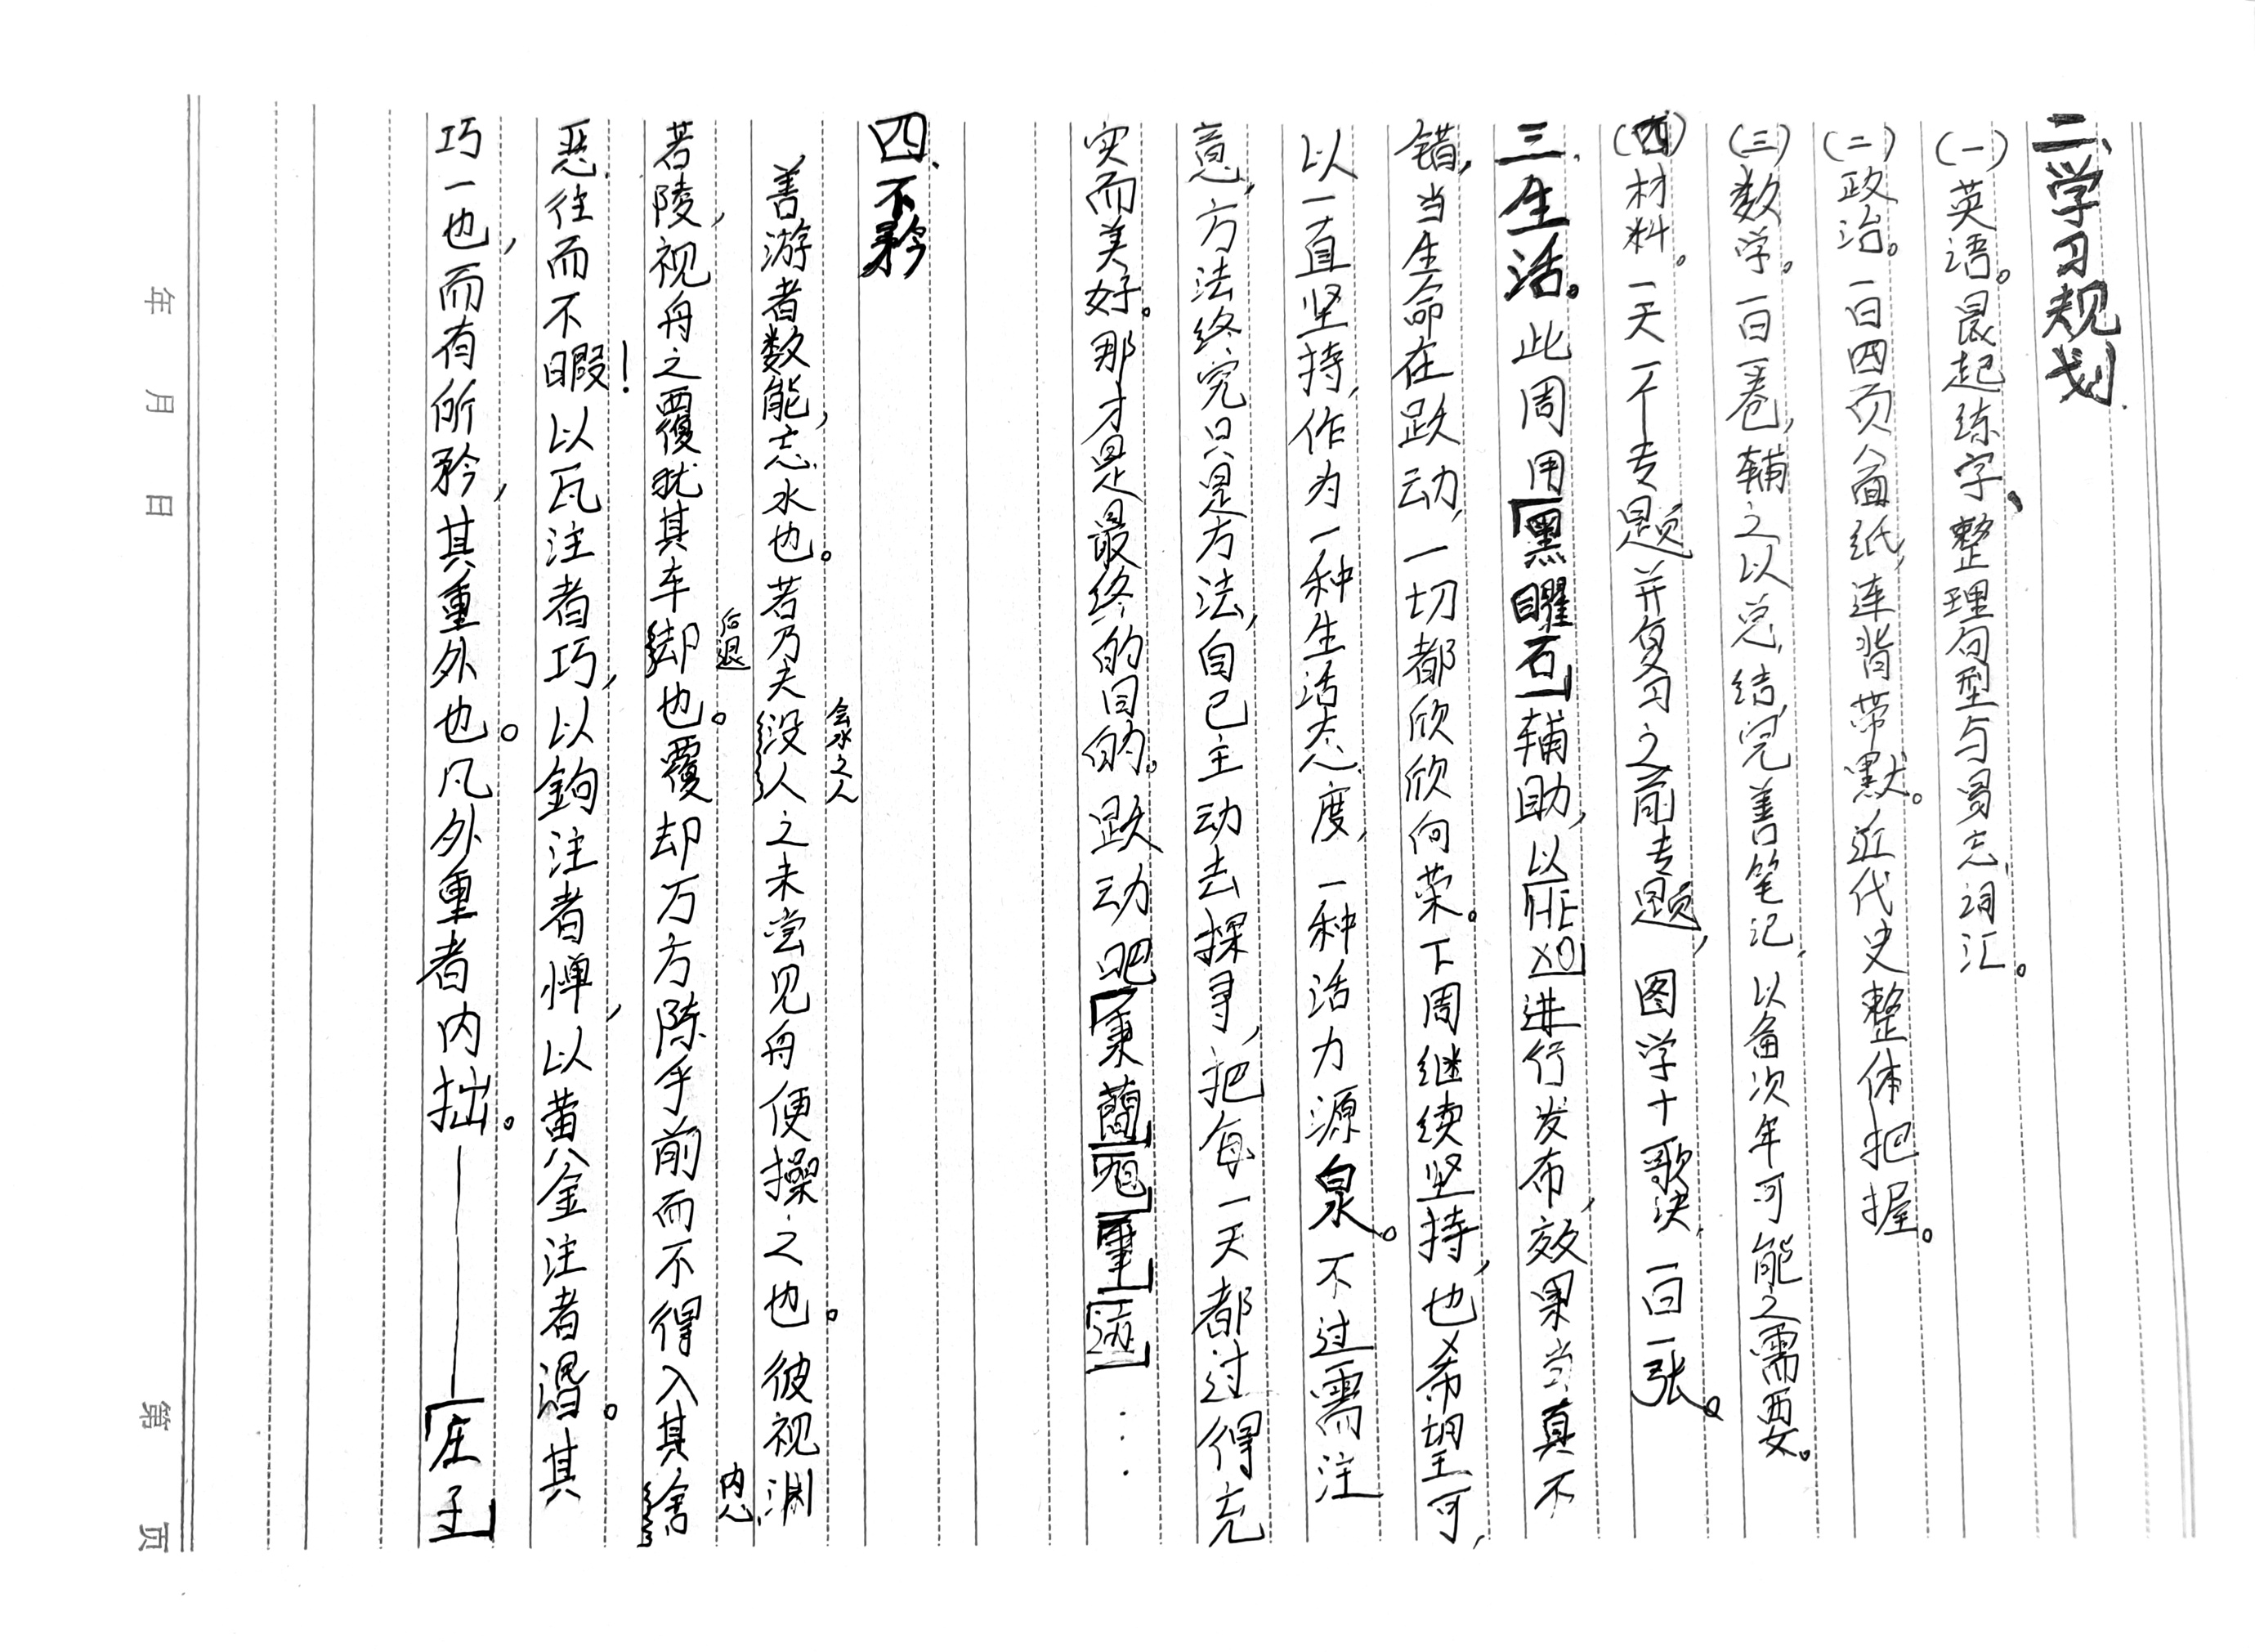 二、学习规划
(一)英语。晨起练字、整理句型与易忘词汇。
(二)政治。一日四页八面纸,连背带默。近代史整体把握。
(三)数学。一日一卷,辅之以总结,完善笔记,以备次年可能之需要。
(四)材料。一天一个专题并复习之前专题,图学十歌诀,一日一张。
三、生活。此周用「黑曜石」辅助,以进行发布,效果当真不
错,当生命在跃动,一切都欣欣向荣。下周继续坚持,也希望可
以一直坚持,作为一种生活态度,一种活力源泉。不过需注
意,方法终究只是方法,自己主动去探寻,把每一天都过得充
实而美好。那才是最终的目的。跃动吧「秉蘭」
四、不矜
善游者数能,忘水也。若乃夫没人之未尝见舟便操之也。彼视渊
会水之人
若陵,视舟之覆犹其车却也。覆却万方陈乎前而不得入其舍
后退
内心
恶往而不暇!以瓦注者巧,以鉤注者惮,以黄金注者湣。其
巧一也,而有所矜,其重外也。凡外重者内拙。——「庄子」
年 月 日
第 页